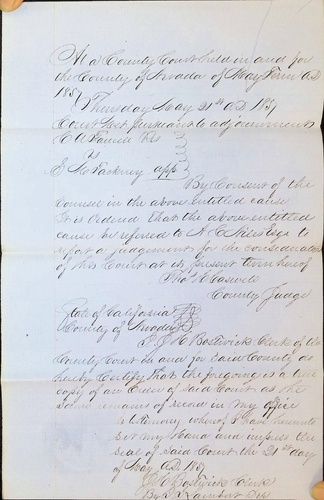 At a County Court held in and for
the County of Nevada of May Term A.D.
1857
Thursday May 21st A.D. 1857
Court Met pursuant to adjournment
C A Res
vs
E McFackney app
By Consent of the
Counsel in the above entitled cause
It is Ordered that the above entitled
cause be referred to A C Niles Esqr to
report a judgement for the consideration
of this Court at its present term hereof
Thos H Caswell
County Judge
State of California
County of Nevada
I J H Bostwick Clerk of the
County Court in and for Said County do
hereby Certify that the foregoing is a true
copy of an Order of said Court as the
same remains of record in my office
In testimony whereof I have hereunto
set my Hand and impress the
seal of said Court the 21st day
of May A.D. 1857
J H Bostwick Clerk
By Lambert Dep